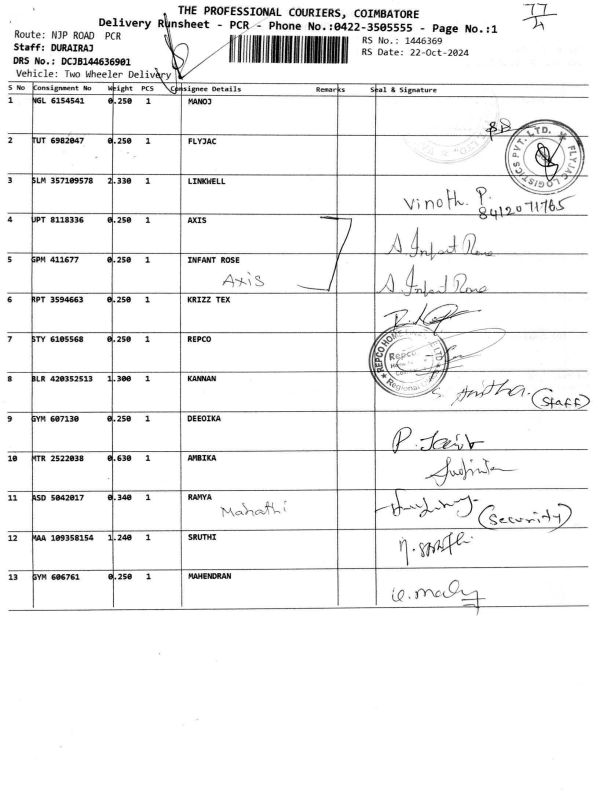 THE PROFESSIONAL COURIERS, COIMBATORE
77
4
Delivery Runsheet - PCR - Phone No.:0422-3505555 - Page No.:1
Route: NJP ROAD PCR
RS No.: 1446369
Staff: DURAIRAJ
RS Date: 22-Oct-2024
DRS No.: DCJB144636901
Vehicle: Two Wheeler Delivery
S No Consignment No Weight PCS Consignee Details Remarks Seal & Signature
1 NGL 6154541 0.250 1 MANOJ
2 TUT 6982047 0.250 1 FLYJAC
FLYJAC LOGISTICS PVT. LTD.
3 SLM 357109578 2.330 1 LINKWELL
Vinoth. P.
8412071765
4 UPT 8118336 0.250 1 AXIS
A. Infant Rose
5 GPM 411677 0.250 1 INFANT ROSE
Axis
A. Infant Rose
6 RPT 3594663 0.250 1 KRIZZ TEX
7 STY 6105568 0.250 1 REPCO
REPCO HOME LTD
Repco
Regional
8 BLR 420352513 1.300 1 KANNAN
S. Anitha. (Staff)
9 GYM 607130 0.250 1 DEEOIKA
10 MTR 2522038 0.630 1 AMBIKA
11 ASD 5042017 0.340 1 RAMYA
Mahathi
(Security)
12 MAA 109358154 1.240 1 SRUTHI
13 GYM 606761 0.250 1 MAHENDRAN